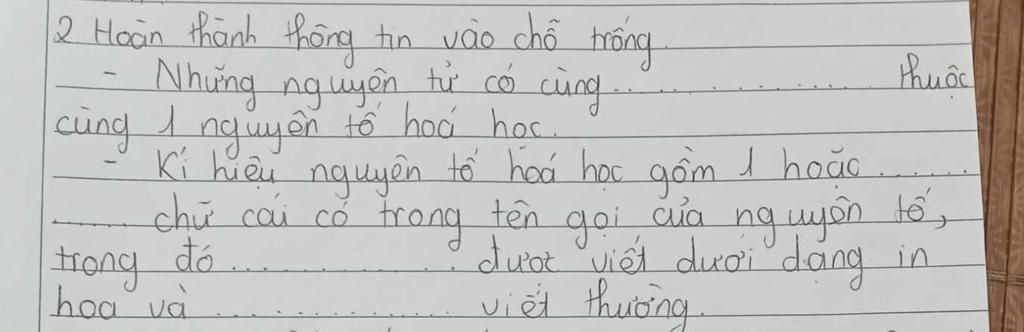 2 Hoàn thành thông tin vào chỗ trống.
- Những nguyên tử có cùng .................. thuộc
cùng 1 nguyên tố hoá học.
- Kí hiệu nguyên tố hoá học gồm 1 hoặc .......
...... chữ cái có trong tên gọi của nguyên tố,
trong đó ................ được viết dưới dạng in
hoa và ................ viết thường.